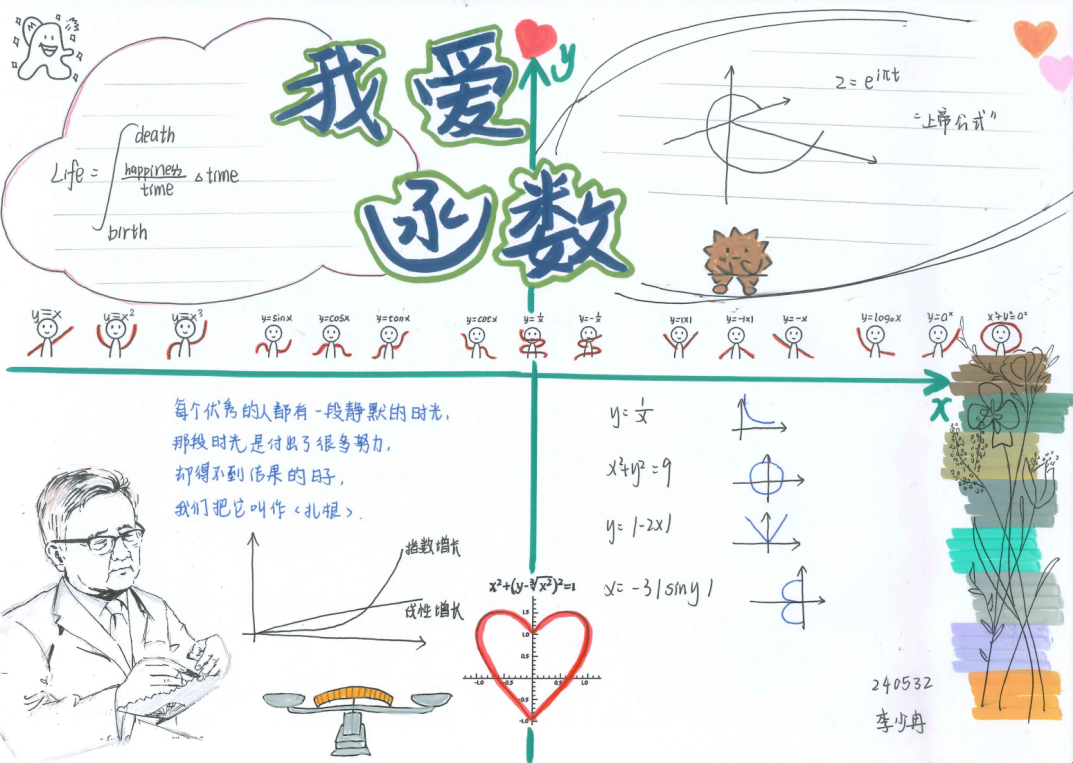 我爱
函数
y
z=e^{iπt}
"上帝公式"
death
Life= happiness/time △time
birth
y=x
y=x²
y=x³
y=sinx
y=cosx
y=tanx
y=cotx
y=1/x
y=-1/x
y=|x|
y=-|x|
y=-x
y=logₐx
y=aˣ
x²+y²=a²
x
每个优秀的人都有一段静默的时光,
那段时光是付出了很多努力,
却得不到结果的日子,
我们把它叫作<扎根>.
指数增长
线性增长
x²+(y-∛x²)²=1
1.5
1.0
0.5
-1.0
-0.5
0.5
1.0
-0.5
-1.0
y=1/x
x²+y²=9
y=|-2x|
x=-3|siny|
240532
李少冉